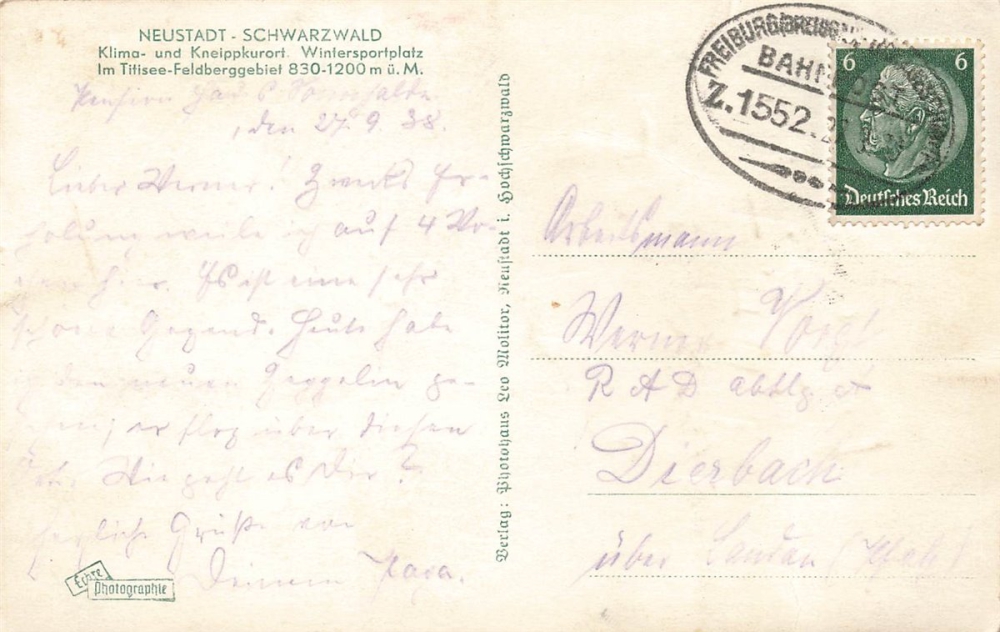 NEUSTADT - SCHWARZWALD
Klima- und Kneippkurort. Wintersportplatz
Im Titisee-Feldberggebiet 830-1200 m ü. M.
Pension
, den 27.9.38.
Lieber Werner! Zwecks Er-
holung weile ich auf 4 Wo-
chen hier. Es ist eine sehr
schöne Gegend. Heute habe
ich den neuen Zeppelin ge-
er flog über diesen
Ort. Wie geht es Dir?
Herzliche Grüße von
Deinem Papa.
Echte
Photographie
Verlag: Photohaus Leo Molitor, Neustadt i. Hochschwarzwald
FREIBURG (BREISGAU)
BAHNPOST
Z.1552.
6 6
Deutsches Reich
Arbeitsmann
Werner Voigt
R A D abtlg
Dierbach
über Landau (Pfalz)